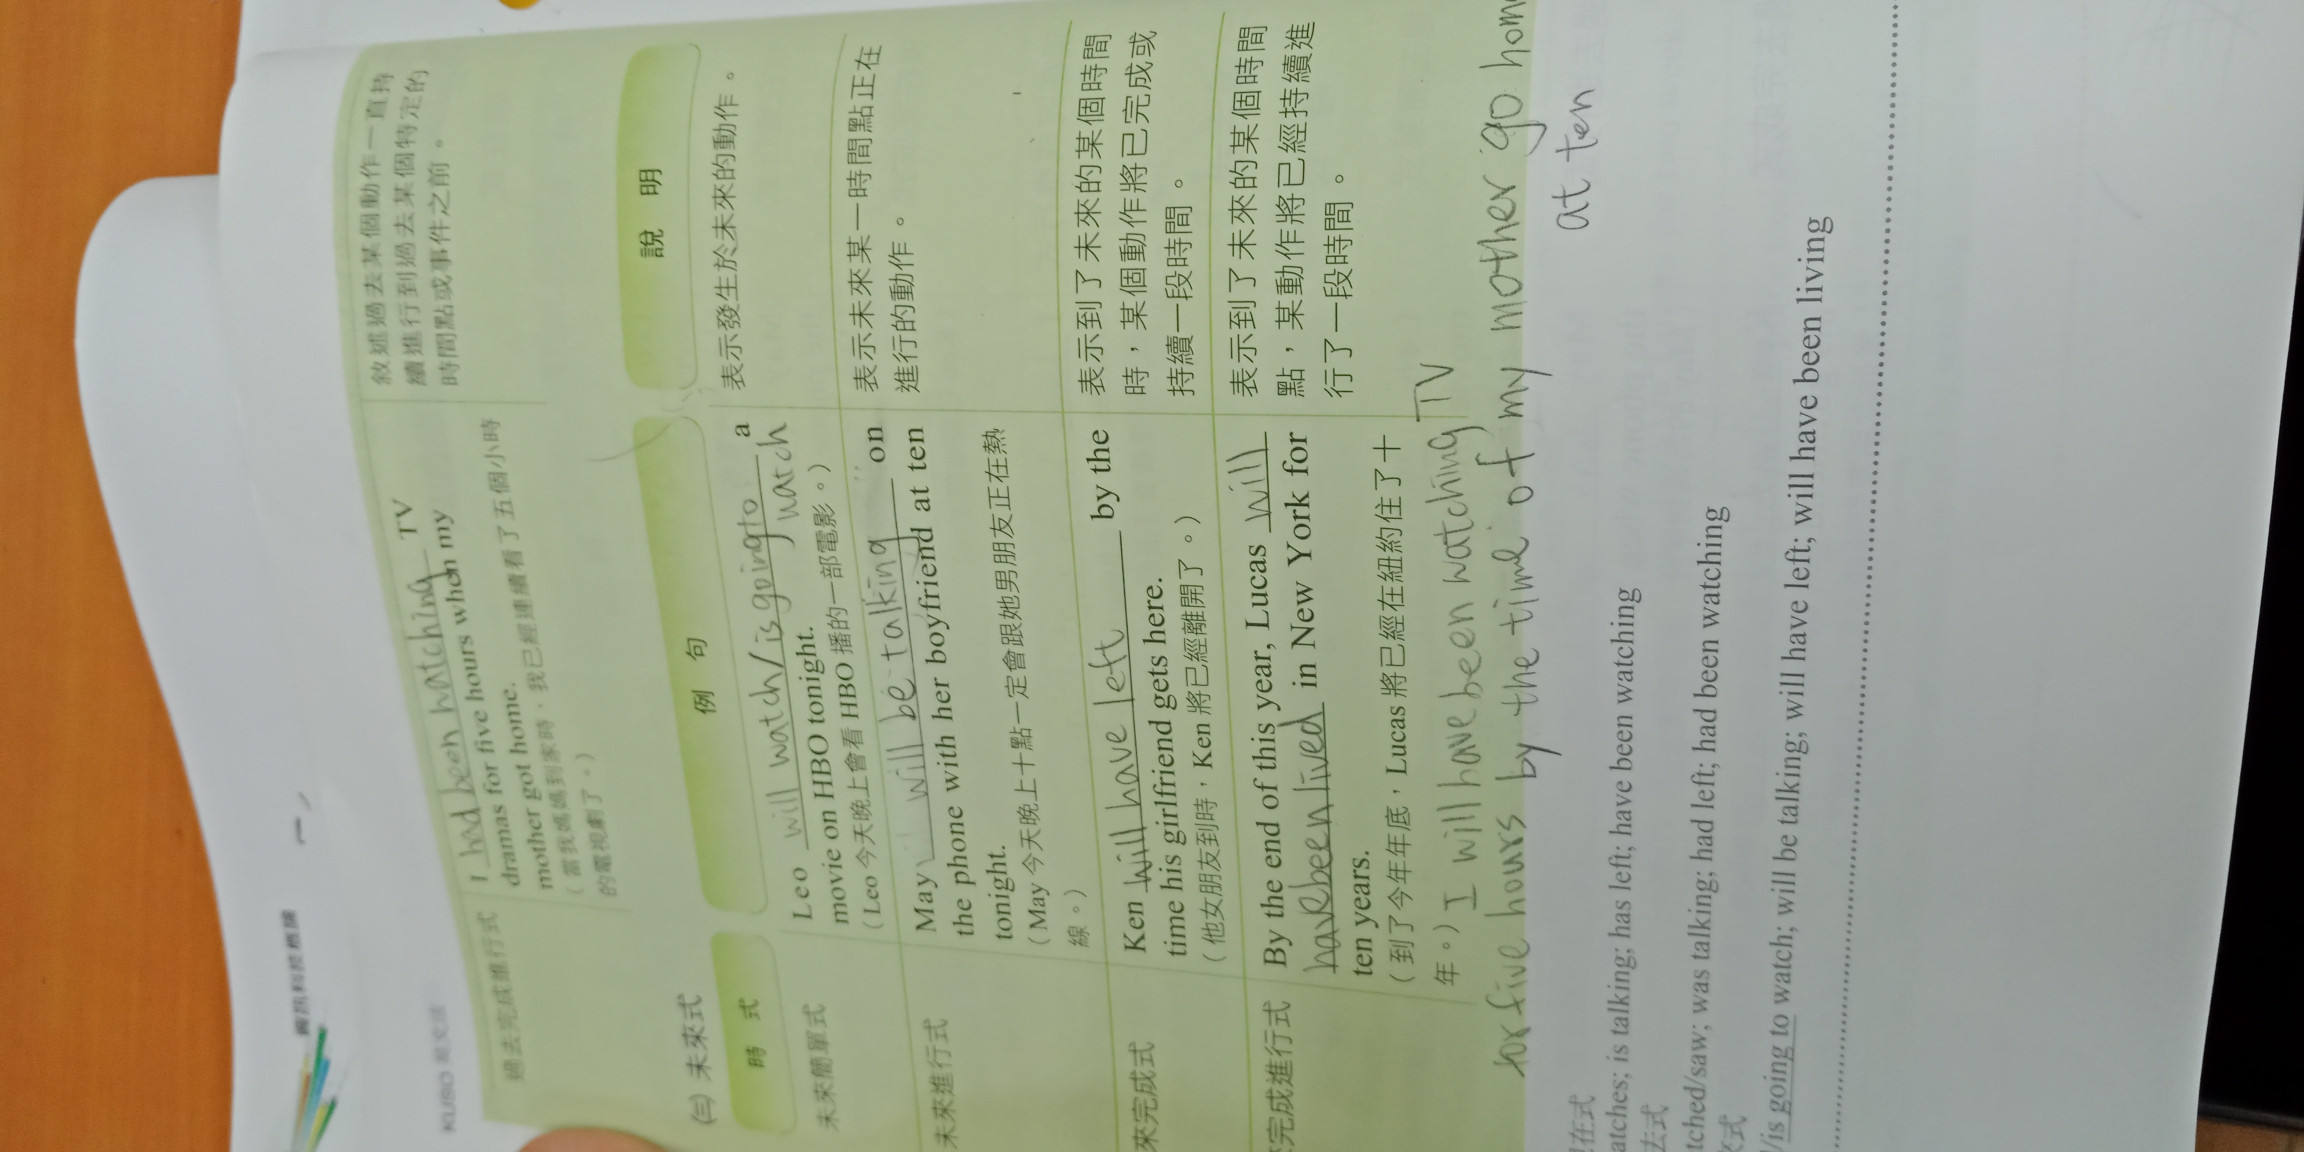 KUSO 英文法
過去完成進行式
I had been watching TV
dramas for five hours when my
mother got home.
(當我媽媽到家時,我已經連續看了五個小時
的電視劇了。)
敘述過去某個動作一直持
續進行到過去某個特定的
時間點或事件之前。
(三) 未來式
時 式
例 句
說 明
未來簡單式
Leo will watch/is going to a
watch
movie on HBO tonight.
(Leo 今天晚上會看 HBO 播的一部電影。)
表示發生於未來的動作。
未來進行式
May will be talking on
the phone with her boyfriend at ten
tonight.
(May 今天晚上十點一定會跟她男朋友正在熱
線。)
表示未來某一時間點正在
進行的動作。
來完成式
Ken will have left by the
time his girlfriend gets here.
(他女朋友到時,Ken 將已經離開了。)
表示到了未來的某個時間
時,某個動作將已完成或
持續一段時間。
完成進行式
By the end of this year, Lucas will
have been lived in New York for
ten years.
(到了今年年底,Lucas 將已經在紐約住了十
年。)
表示到了未來的某個時間
點,某動作將已經持續進
行了一段時間。
I will have been watching TV
for five hours by the time of my mother go home
at ten
在式
atches; is talking; has left; have been watching
去式
tched/saw; was talking; had left; had been watching
來式
/is going to watch; will be talking; will have left; will have been living